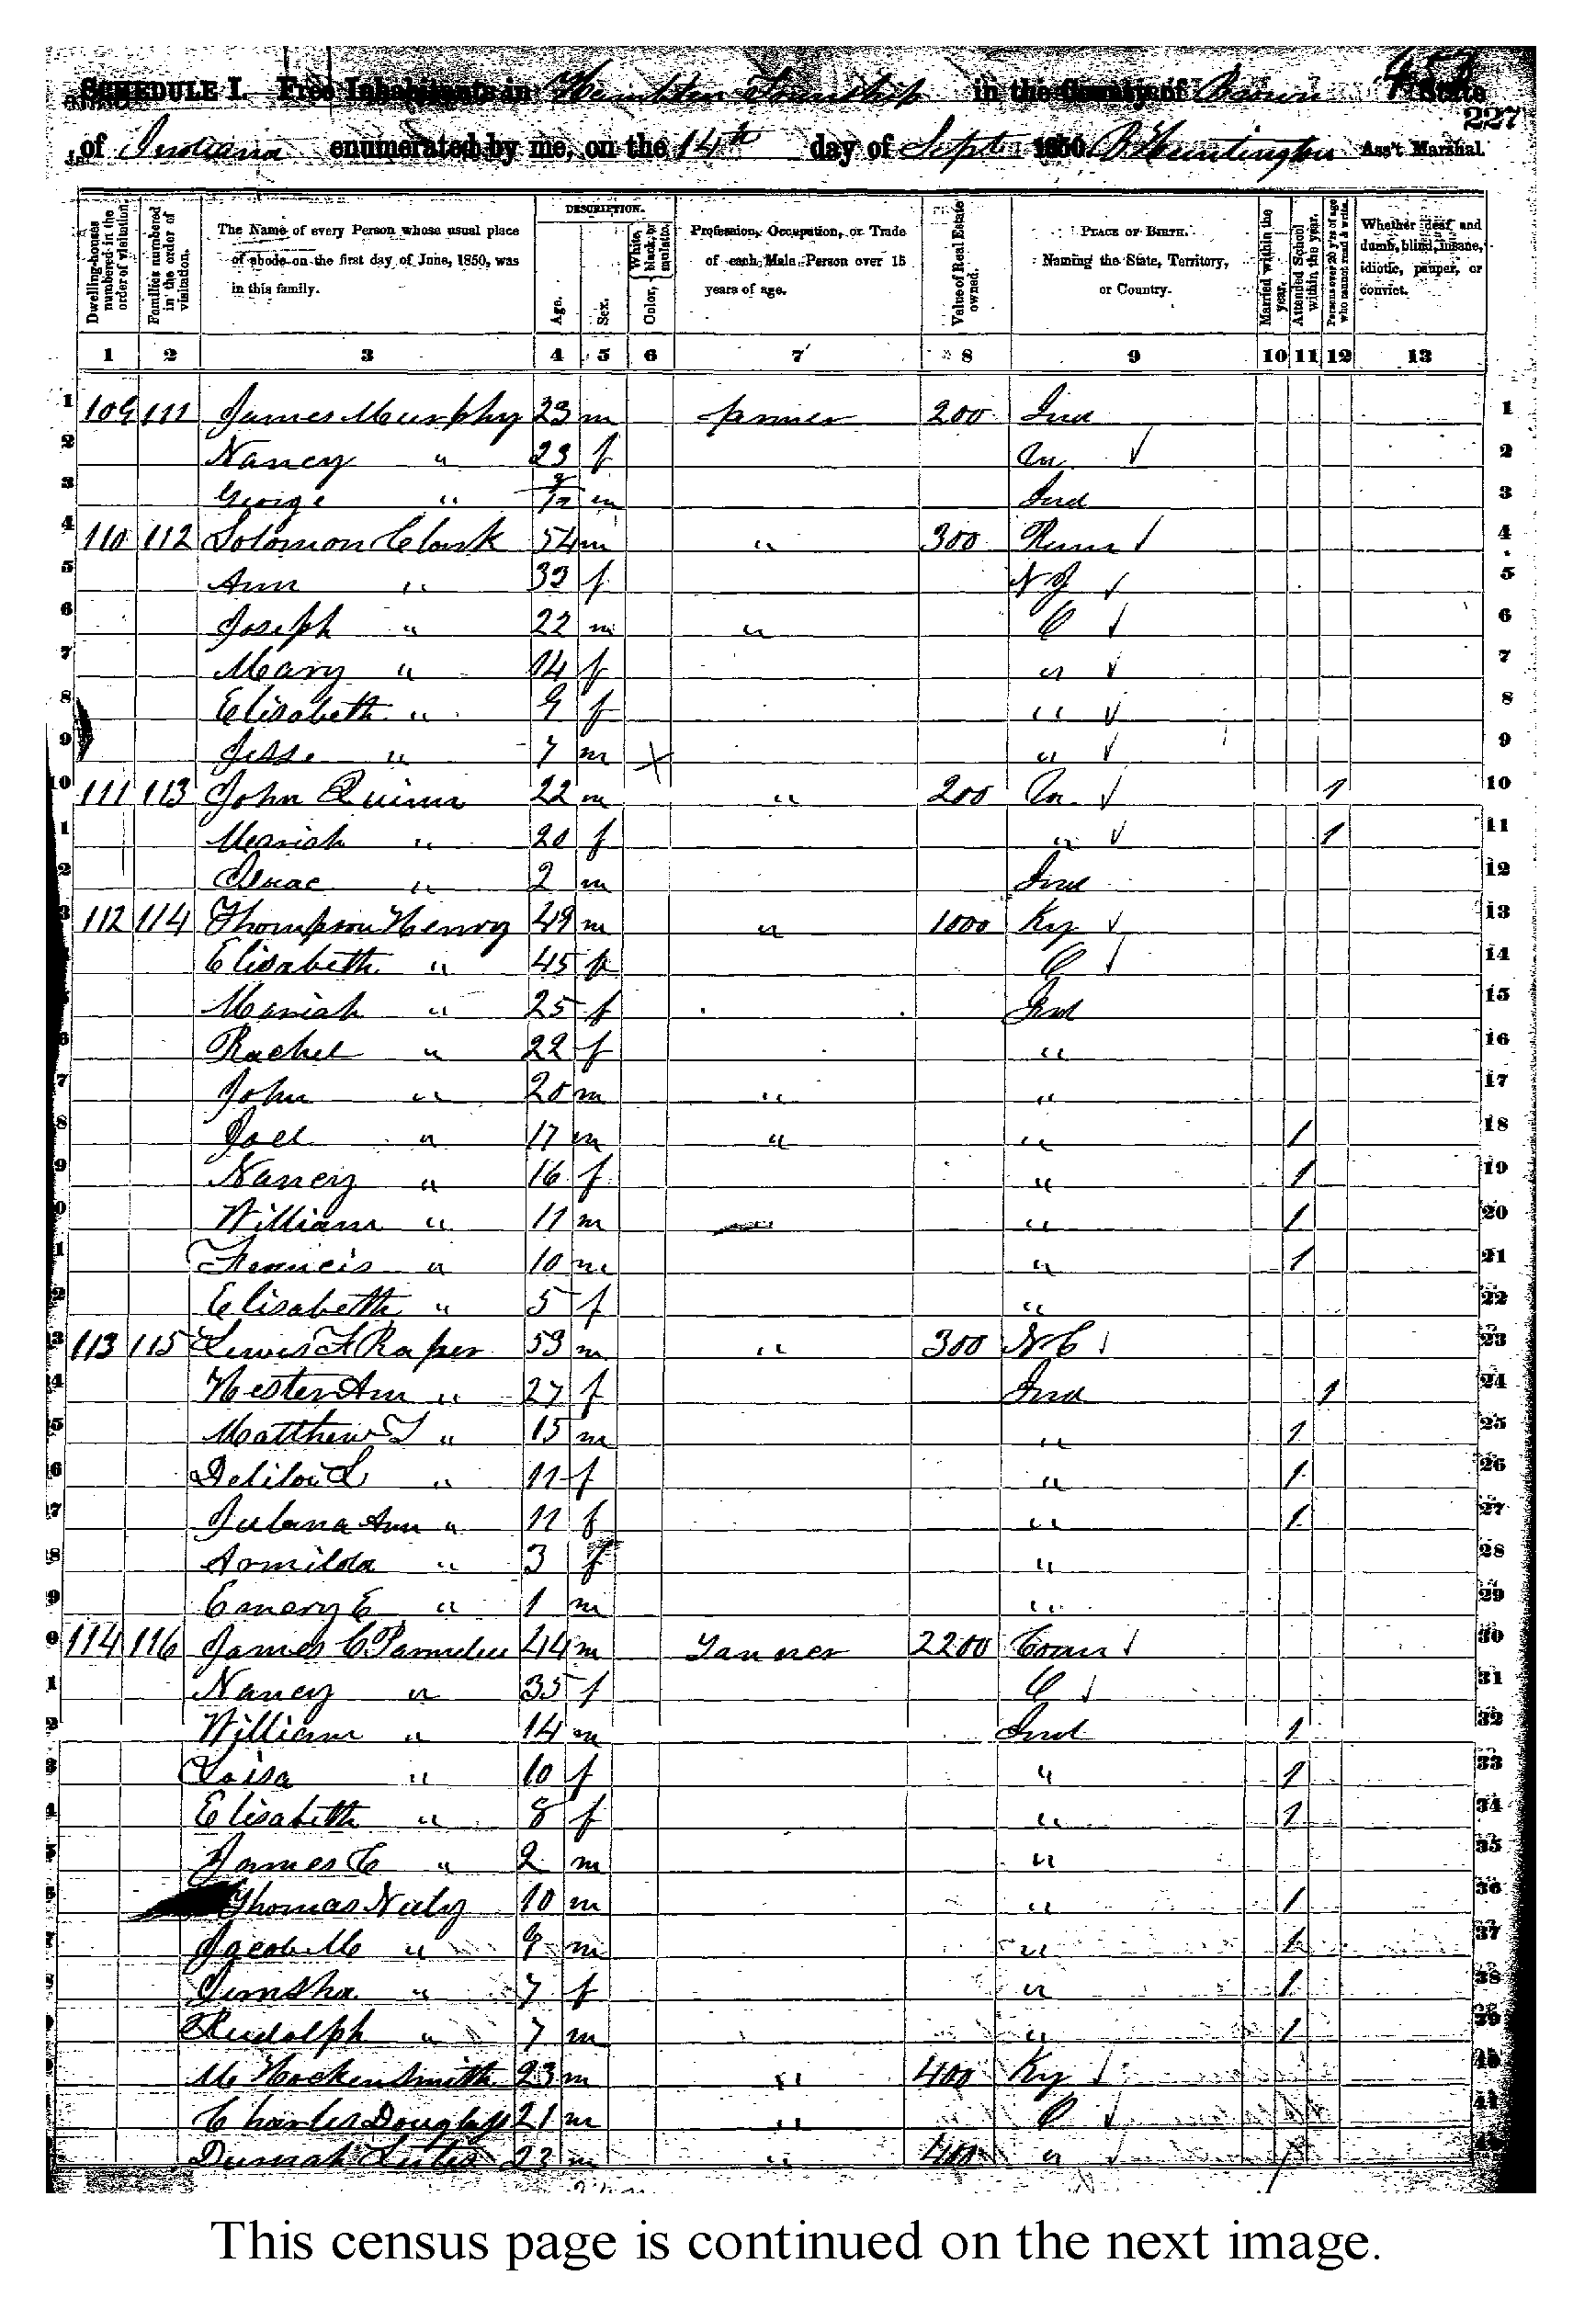 SCHEDULE I. Free Inhabitants in Hamblen Township in the County of Brown State
227
of Indiana enumerated by me, on the 14th day of Sept 1850. Huntington Ass't Marshal.
Dwelling-houses numbered in the order of visitation.
Families numbered in the order of visitation.
The Name of every Person whose usual place of abode on the first day of June, 1850, was in this family.
DESCRIPTION.
Age.
Sex.
Color, White, black, or mulatto.
Profession, Occupation, or Trade of each Male Person over 15 years of age.
Value of Real Estate owned.
PLACE OF BIRTH. Naming the State, Territory, or Country.
Married within the year.
Attended School within the year.
Persons over 20 y'rs of age who cannot read & write.
Whether deaf and dumb, blind, insane, idiotic, pauper, or convict.
1 2 3 4 5 6 7 8 9 10 11 12 13
1 109 111 James Murphy 23 m farmer 200 Ind 1
2 Nancy " 23 f 2
3 George " m Ind 3
4 110 112 Solomon Clark 54 m " 300 4
5 Ann " 33 f N J 5
6 Joseph " 22 m " O 6
7 Mary " 14 f " 7
8 Elisabeth " 9 f " 8
9 Jesse " 7 m " 9
10 111 113 John Quinn 22 m " 200 1 10
1 Mariah " 20 f " 1 11
2 Isaac " 2 m Ind 12
3 112 114 Thompson Henry 49 m " 1000 Ky 13
Elisabeth " 45 f O 14
Mariah " 25 f Ind 15
6 Rachel " 22 f " 16
7 John " 20 m " " 17
8 Joel " 17 m " " 1 18
9 Nancy " 16 f " 1 19
0 William " 11 m " 1 20
1 Francis " 10 m " 1 21
2 Elisabeth " 5 f " 22
3 113 115 Lewis F Raper 53 m " 300 N C 23
4 Hester Ann " 27 f Ind 1 24
5 Matthew T " 15 m " 1 25
6 L " 11 f " 1 26
7 Julana Ann " 11 f " 1 27
8 Armilda " 3 f " 28
9 Emery E " 1 m " 29
0 114 116 James C. Parmelee 44 m Tanner 2200 Conn 30
1 Nancy " 35 f O 31
2 William " 14 m Ind 1 32
3 Loisa " 10 f " 1 33
4 Elisabeth " 8 f " 1 34
5 James C " 2 m " 35
Thomas Neely 10 m " 1 36
7 Jacob M " 9 m " 1 37
8 " 7 f " 1 38
Rudolph " 7 m " 1 39
M Hockensmith 23 m " 400 Ky 40
Charles Douglass 21 m " O 41
Lutes 23 m " 400 " 42
This census page is continued on the next image.